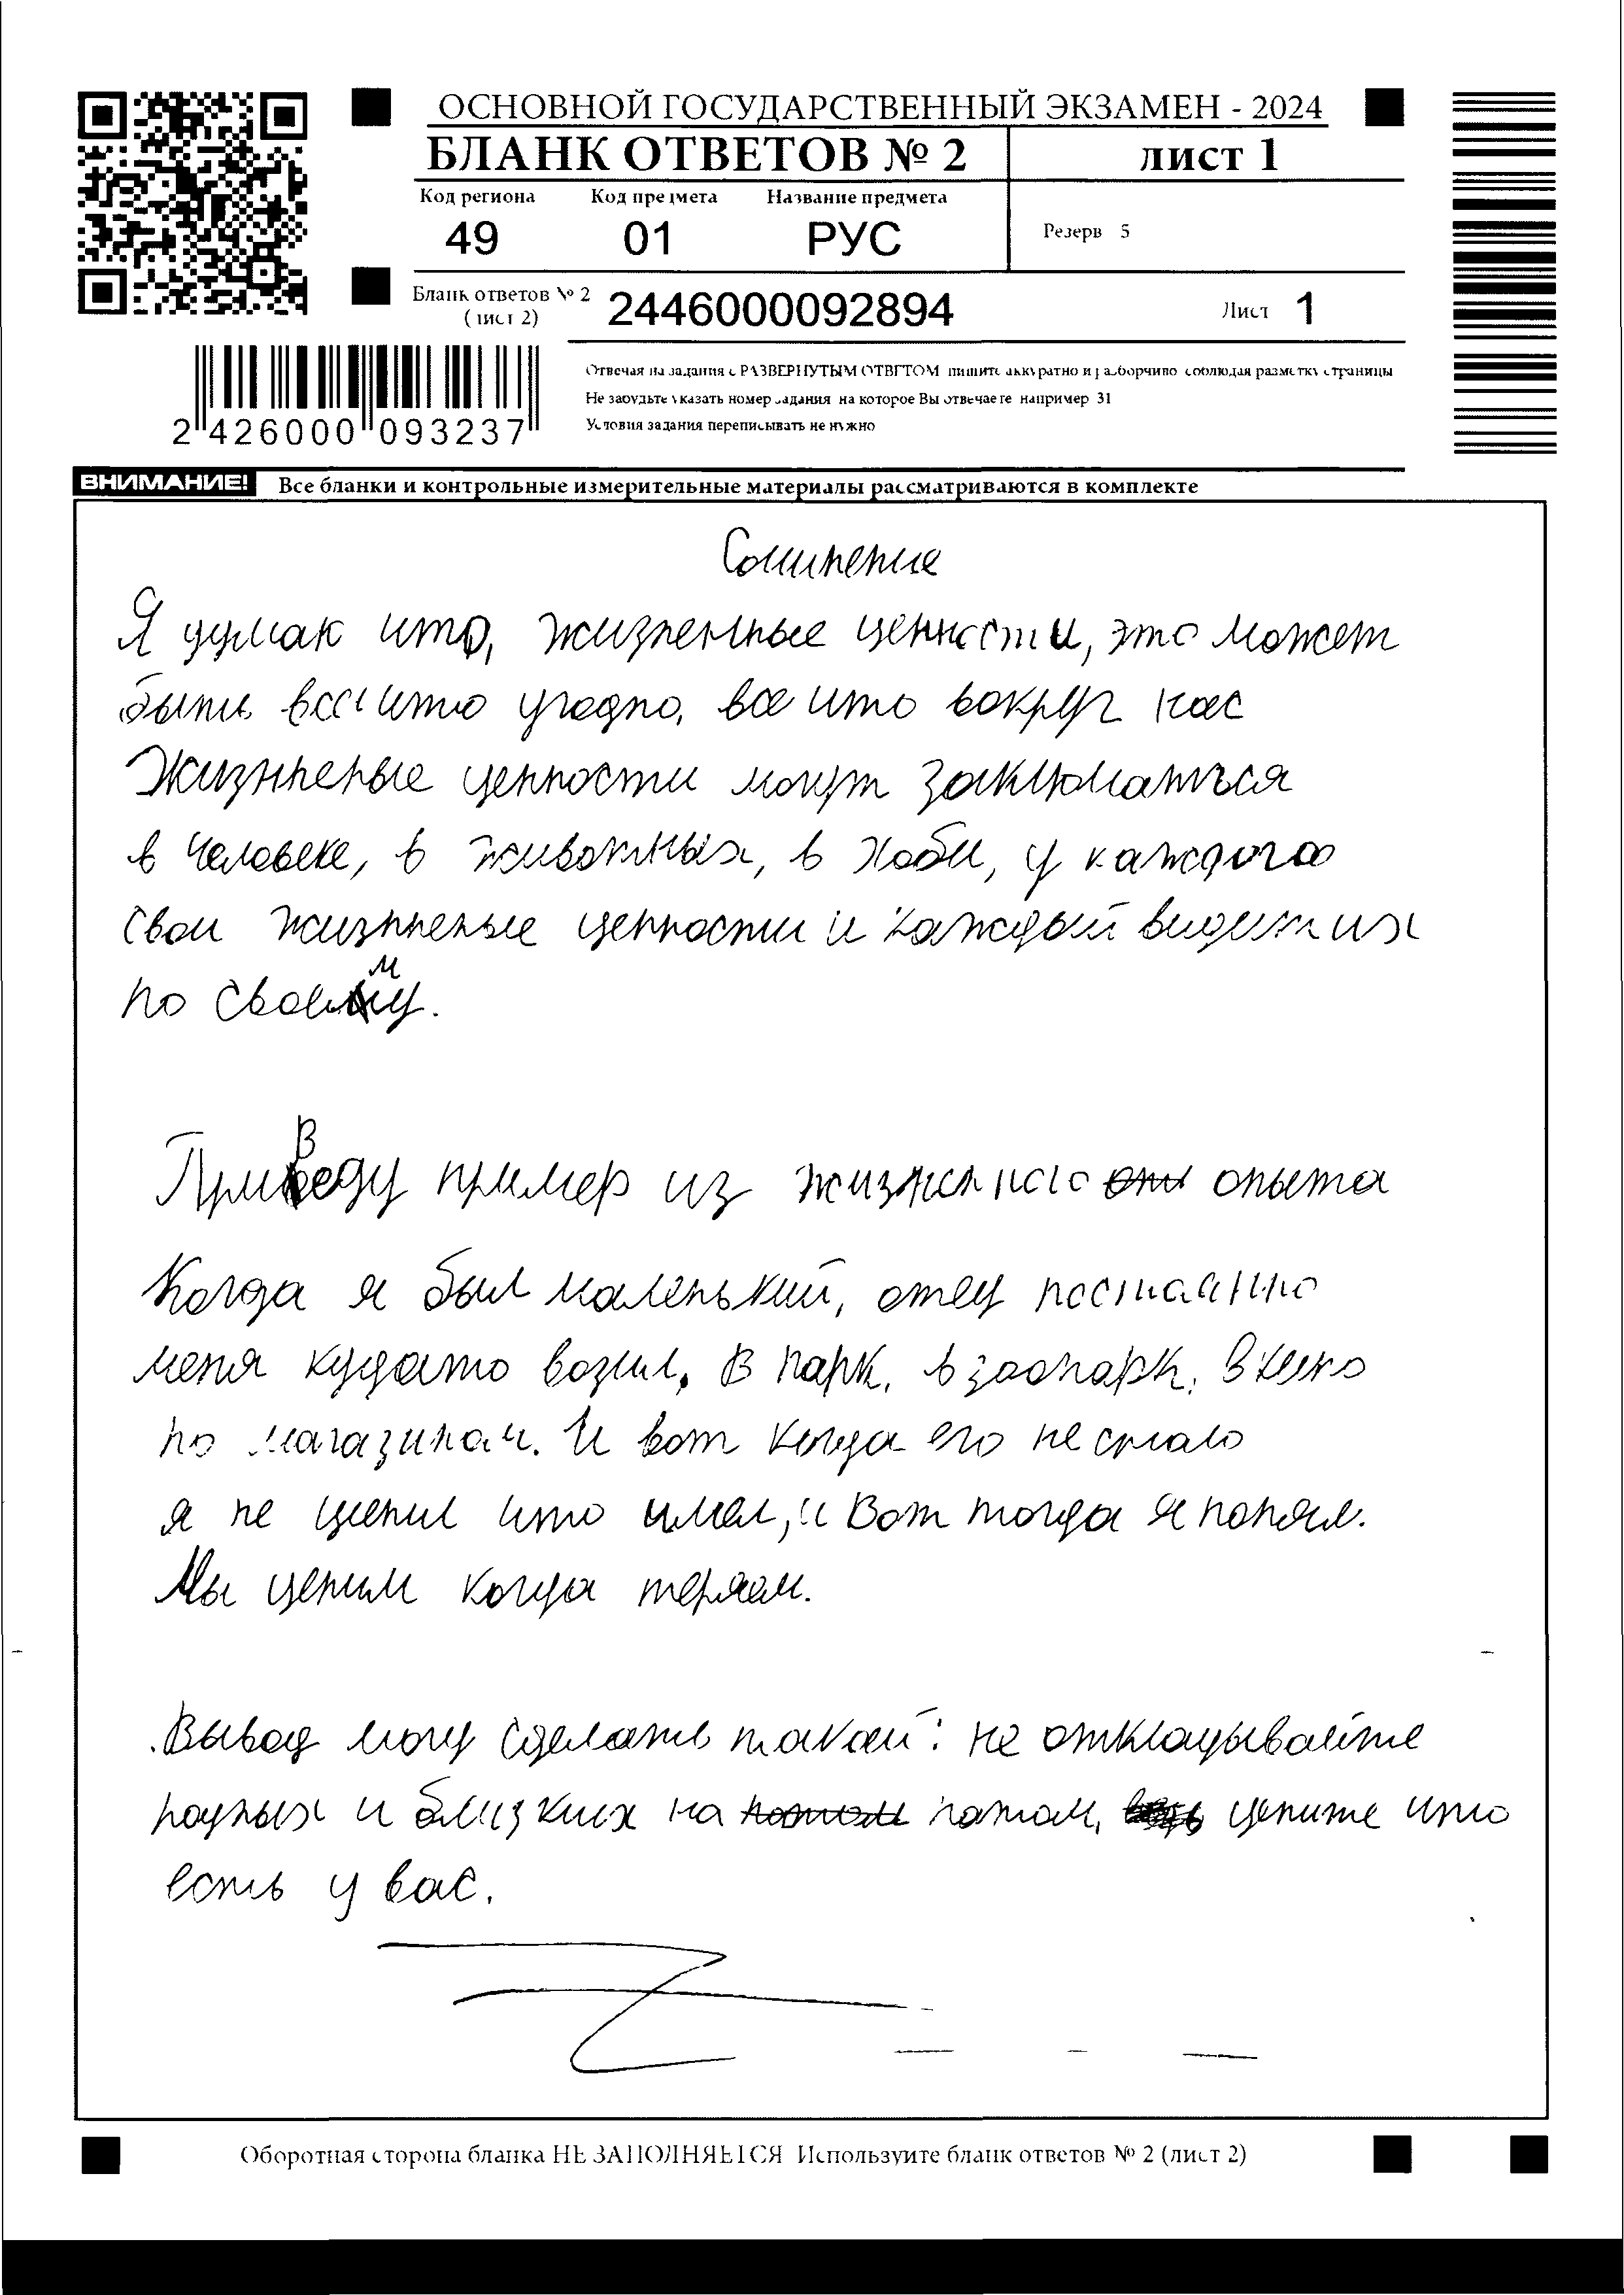 ОСНОВНОЙ ГОСУДАРСТВЕННЫЙ ЭКЗАМЕН - 2024
БЛАНК ОТВЕТОВ № 2 лист 1
Код региона Код предмета Название предмета
49 01 РУС
Резерв 5
Бланк ответов № 2 (лист 2) 2446000092894 Лист 1
Отвечая на задания с РАЗВЕРНУТЫМ ОТВЕТОМ пишите аккуратно и разборчиво соблюдая разметку страницы
Не забудьте указать номер задания на которое Вы отвечаете например 31
Условия задания переписывать не нужно
2 426000 093237
ВНИМАНИЕ! Все бланки и контрольные измерительные материалы рассматриваются в комплекте
Сочинение
Я думаю что, жизненные ценности, это может
быть всё что угодно, все что вокруг нас
Жизнненые ценности могут заключаться
в человеке, в животных, в хоби, у каждого
свои жизнненые ценности и каждый видет их
по своему.
Приведу пример из жизненого опыта
Когда я был маленький, отец постоянно
меня кудато возил, в парк, в зоопарк, в кено
по магазинам. И вот когда его не стало
я не ценил что имел, и вот тогда я понял.
Мы ценим когда теряем.
Вывод могу сделать такой: не откладывайте
родных и близких на потом, цените что
есть у вас.
Оборотная сторона бланка НЕ ЗАПОЛНЯЕТСЯ Используйте бланк ответов № 2 (лист 2)